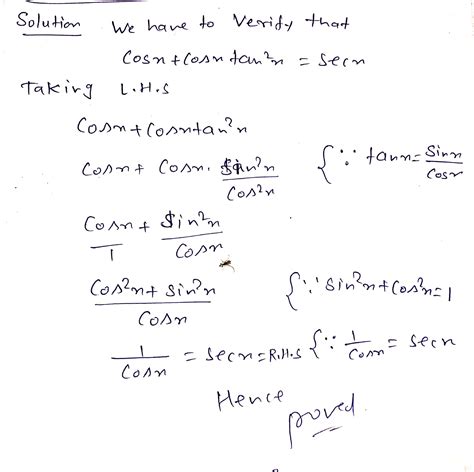 Solution We have to Verify that
Cosn + Cosn tan²n = Secn
Taking L.H.S
Cosn + Cosn tan²n
Cosn + Cosn. Sin²n/Cos²n {∵ tann = Sinn/Cosn
Cosn/1 + Sin²n/Cosn
Cos²n + Sin²n/Cosn {∵ Sin²n + Cos²n = 1
1/Cosn = Secn = R.H.S {∵ 1/Cosn = Secn
Hence
proved.